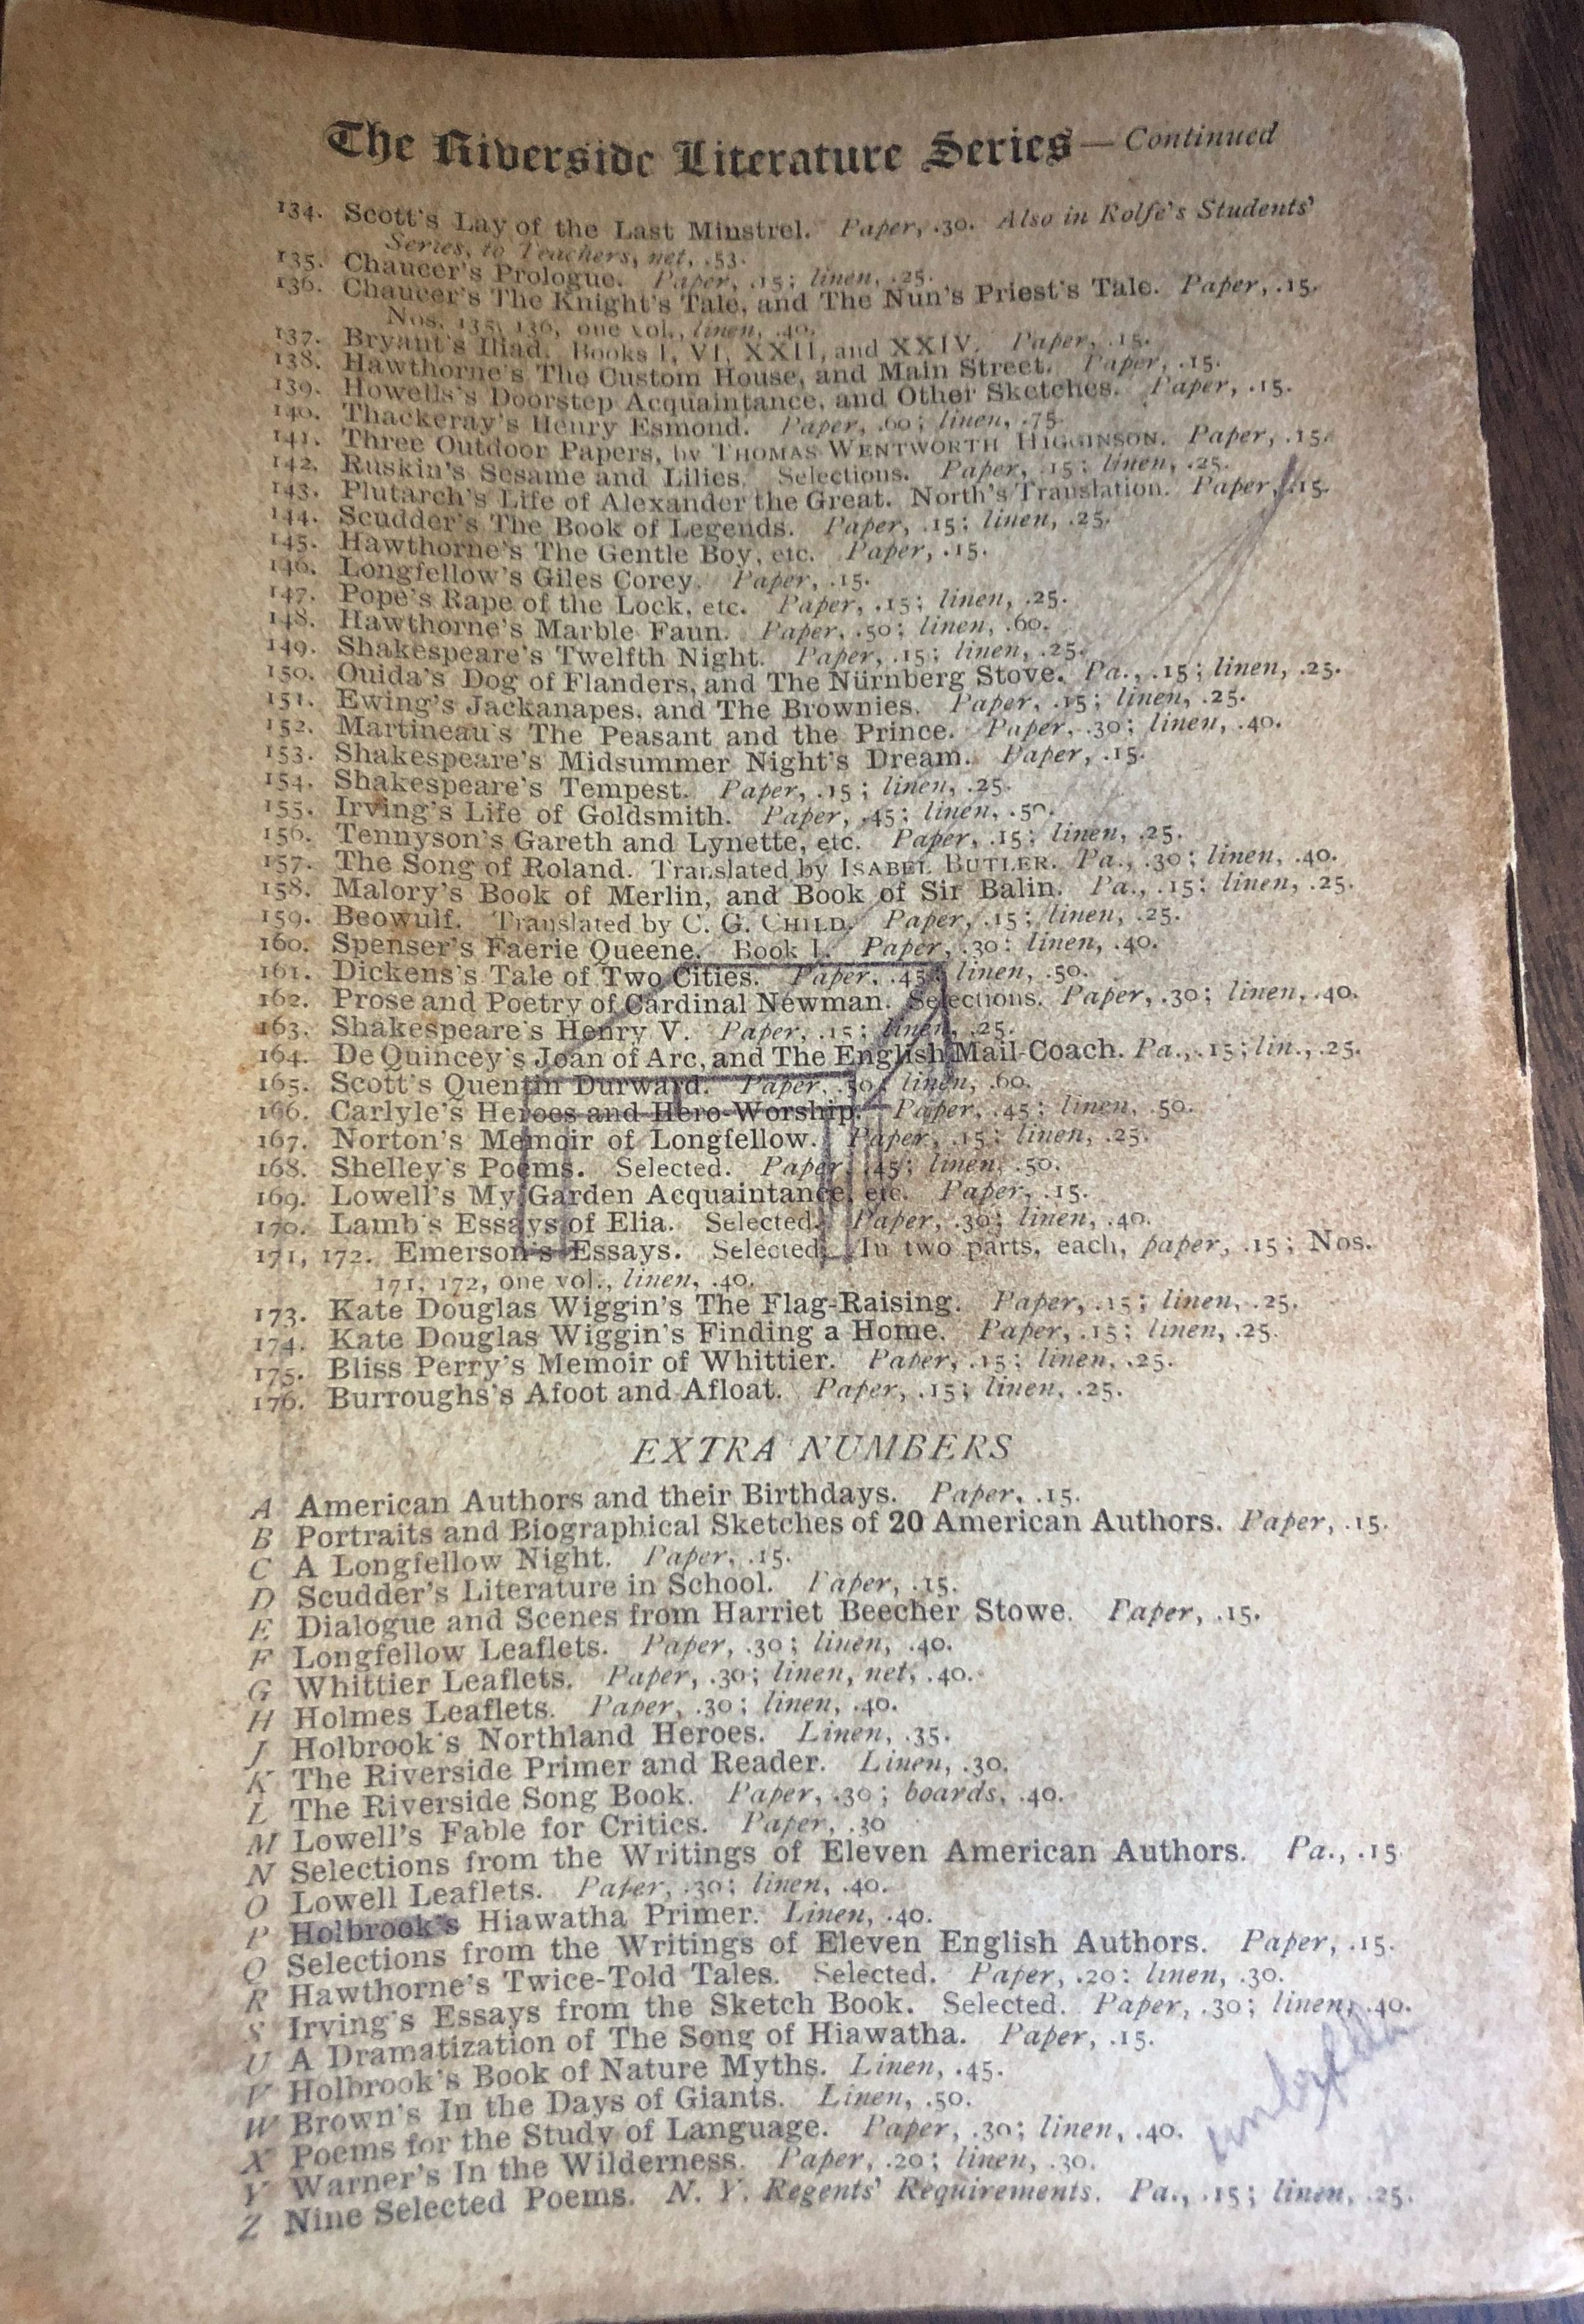 The Riverside Literature Series — Continued
134. Scott's Lay of the Last Minstrel. Paper, .30. Also in Rolfe's Students'
Series, to Teachers, net, .53.
135. Chaucer's Prologue. Paper, .15; linen, .25.
136. Chaucer's The Knight's Tale, and The Nun's Priest's Tale. Paper, .15.
Nos. 135, 136, one vol., linen, .40.
137. Bryant's Iliad. Books I, VI, XXII, and XXIV. Paper, .15.
138. Hawthorne's The Custom House, and Main Street. Paper, .15.
139. Howells's Doorstep Acquaintance, and Other Sketches. Paper, .15.
140. Thackeray's Henry Esmond. Paper, .60; linen, .75.
141. Three Outdoor Papers, by THOMAS WENTWORTH HIGGINSON. Paper, .15.
142. Ruskin's Sesame and Lilies. Selections. Paper, .15; linen, .25.
143. Plutarch's Life of Alexander the Great. North's Translation. Paper, .15.
144. Scudder's The Book of Legends. Paper, .15; linen, .25.
145. Hawthorne's The Gentle Boy, etc. Paper, .15.
146. Longfellow's Giles Corey. Paper, .15.
147. Pope's Rape of the Lock, etc. Paper, .15; linen, .25.
148. Hawthorne's Marble Faun. Paper, .50; linen, .60.
149. Shakespeare's Twelfth Night. Paper, .15; linen, .25.
150. Ouida's Dog of Flanders, and The Nürnberg Stove. Pa., .15; linen, .25.
151. Ewing's Jackanapes, and The Brownies. Paper, .15; linen, .25.
152. Martineau's The Peasant and the Prince. Paper, .30; linen, .40.
153. Shakespeare's Midsummer Night's Dream. Paper, .15.
154. Shakespeare's Tempest. Paper, .15; linen, .25.
155. Irving's Life of Goldsmith. Paper, .45; linen, .50.
156. Tennyson's Gareth and Lynette, etc. Paper, .15; linen, .25.
157. The Song of Roland. Translated by ISABEL BUTLER. Pa., .30; linen, .40.
158. Malory's Book of Merlin, and Book of Sir Balin. Pa., .15; linen, .25.
159. Beowulf. Translated by C. G. CHILD. Paper, .15; linen, .25.
160. Spenser's Faerie Queene. Book I. Paper, .30; linen, .40.
161. Dickens's Tale of Two Cities. Paper, .45; linen, .50.
162. Prose and Poetry of Cardinal Newman. Selections. Paper, .30; linen, .40.
163. Shakespeare's Henry V. Paper, .15; linen, .25.
164. De Quincey's Joan of Arc, and The English Mail-Coach. Pa., .15; lin., .25.
165. Scott's Quentin Durward. Paper, .50; linen, .60.
166. Carlyle's Heroes and Hero-Worship. Paper, .45; linen, .50.
167. Norton's Memoir of Longfellow. Paper, .15; linen, .25.
168. Shelley's Poems. Selected. Paper, .45; linen, .50.
169. Lowell's My Garden Acquaintance, etc. Paper, .15.
170. Lamb's Essays of Elia. Selected. Paper, .30; linen, .40.
171, 172. Emerson's Essays. Selected. In two parts, each, paper, .15; Nos.
171, 172, one vol., linen, .40.
173. Kate Douglas Wiggin's The Flag-Raising. Paper, .15; linen, .25.
174. Kate Douglas Wiggin's Finding a Home. Paper, .15; linen, .25.
175. Bliss Perry's Memoir of Whittier. Paper, .15; linen, .25.
176. Burroughs's Afoot and Afloat. Paper, .15; linen, .25.
EXTRA NUMBERS
A American Authors and their Birthdays. Paper, .15.
B Portraits and Biographical Sketches of 20 American Authors. Paper, .15.
C A Longfellow Night. Paper, .15.
D Scudder's Literature in School. Paper, .15.
E Dialogue and Scenes from Harriet Beecher Stowe. Paper, .15.
F Longfellow Leaflets. Paper, .30; linen, .40.
G Whittier Leaflets. Paper, .30; linen, net, .40.
H Holmes Leaflets. Paper, .30; linen, .40.
J Holbrook's Northland Heroes. Linen, .35.
K The Riverside Primer and Reader. Linen, .30.
L The Riverside Song Book. Paper, .30; boards, .40.
M Lowell's Fable for Critics. Paper, .30
N Selections from the Writings of Eleven American Authors. Pa., .15.
O Lowell Leaflets. Paper, .30; linen, .40.
P Holbrook's Hiawatha Primer. Linen, .40.
Q Selections from the Writings of Eleven English Authors. Paper, .15.
R Hawthorne's Twice-Told Tales. Selected. Paper, .20; linen, .30.
S Irving's Essays from the Sketch Book. Selected. Paper, .30; linen, .40.
U A Dramatization of The Song of Hiawatha. Paper, .15.
V Holbrook's Book of Nature Myths. Linen, .45.
W Brown's In the Days of Giants. Linen, .50.
X Poems for the Study of Language. Paper, .30; linen, .40.
Y Warner's In the Wilderness. Paper, .20; linen, .30.
Z Nine Selected Poems. N. Y. Regents' Requirements. Pa., .15; linen, .25.